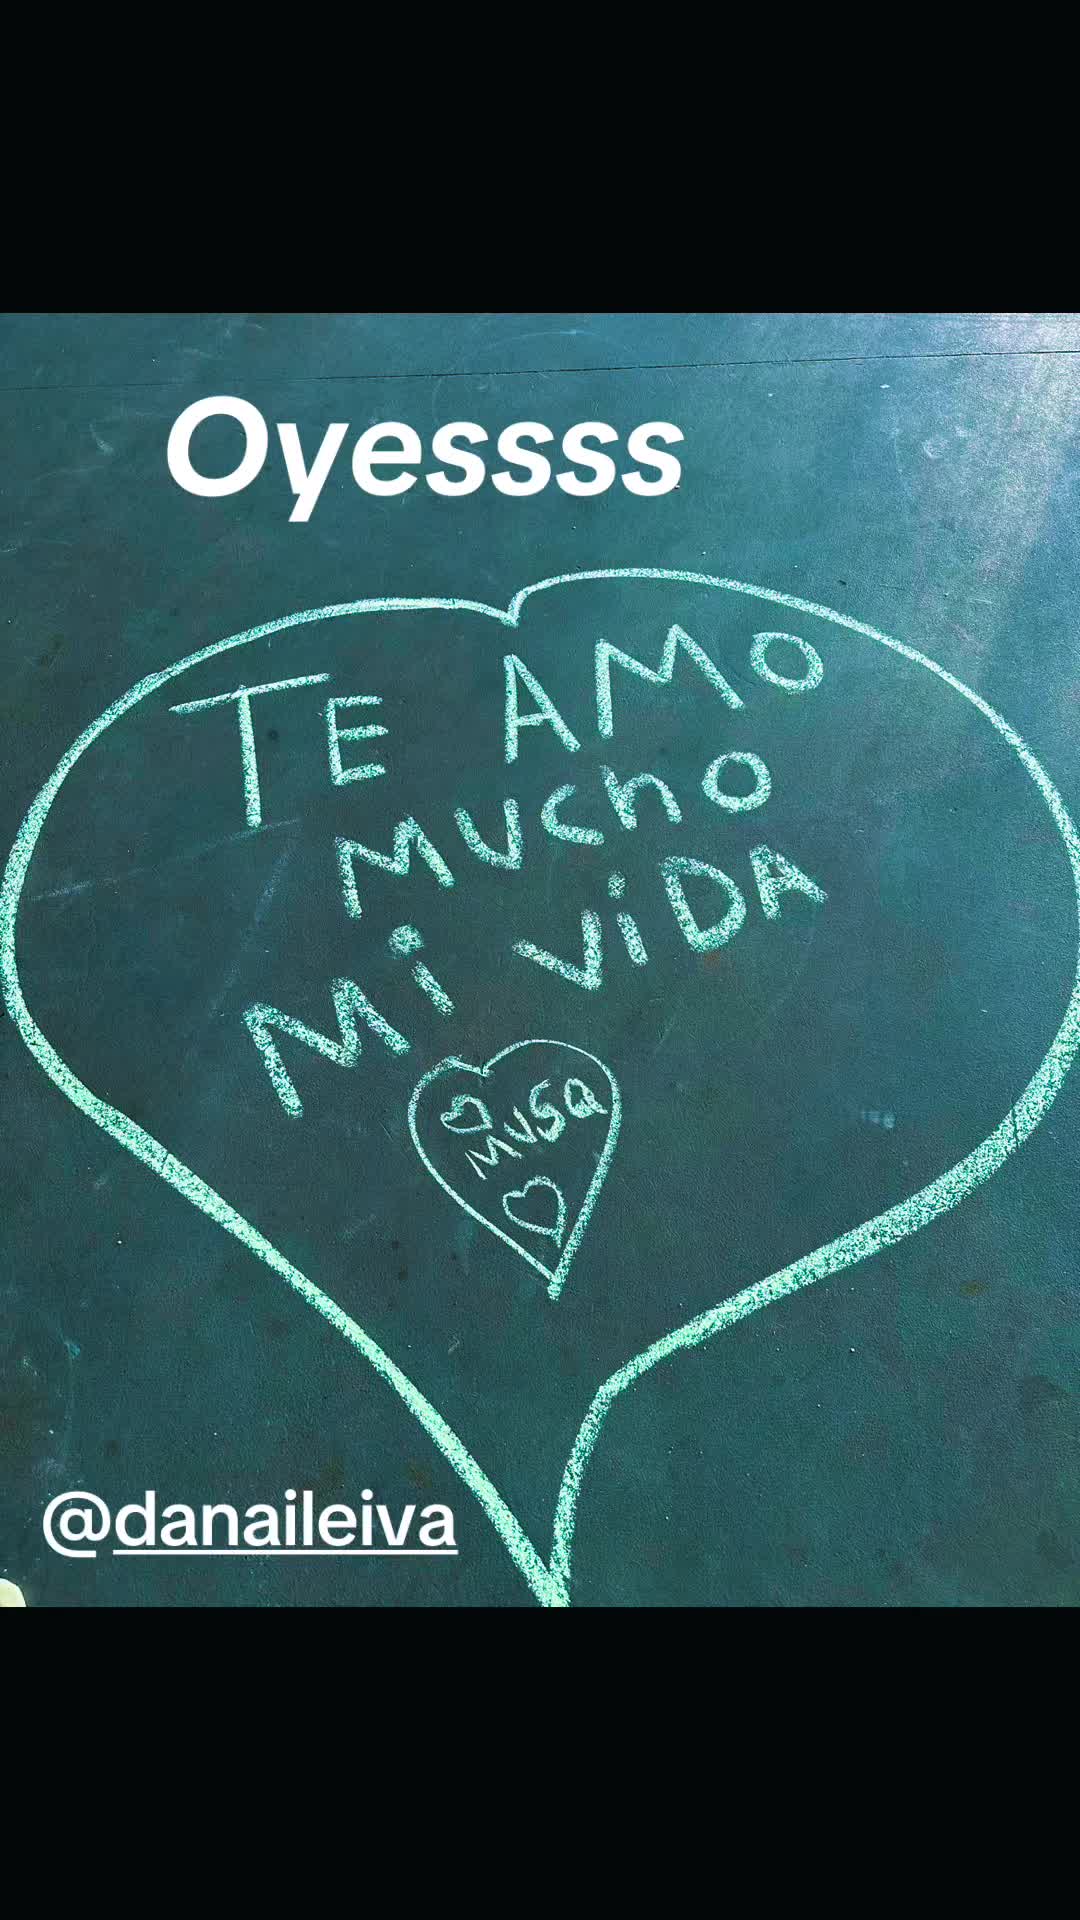 Oyessss
TE AMO
MUchO
Mi ViDA
MUSA
@danaileiva